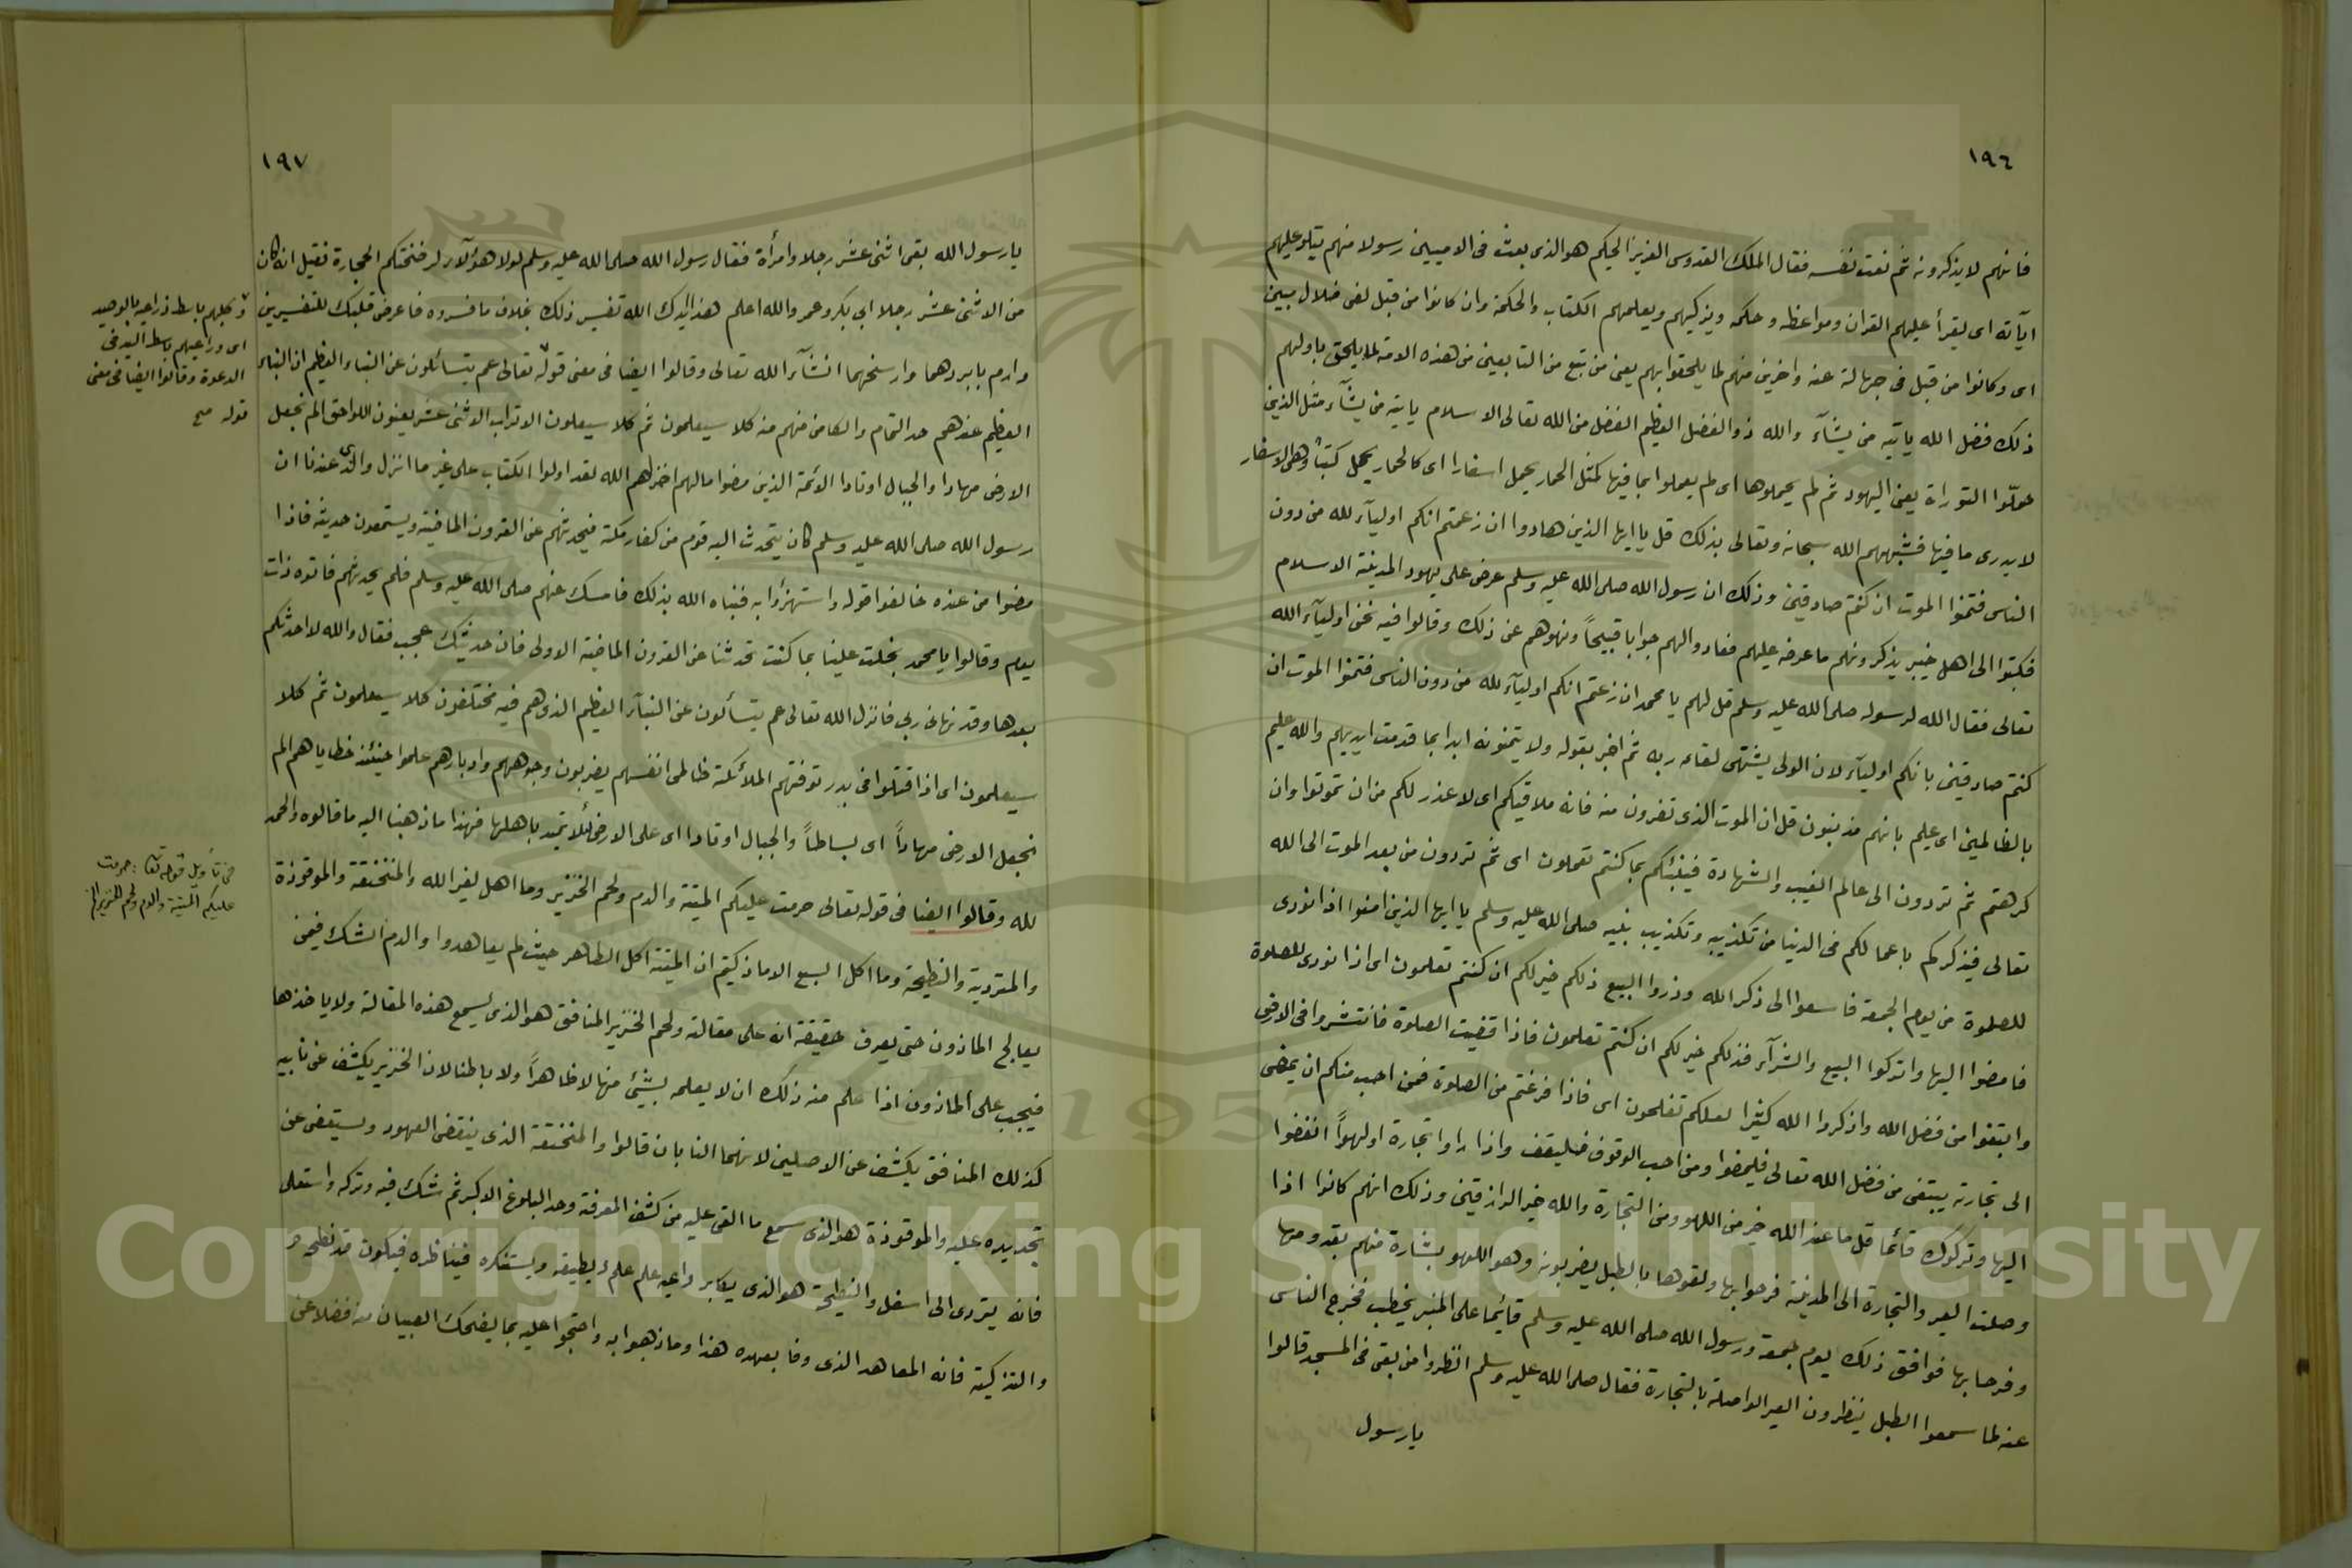 ١٩٦
فانهم لا يذكرونه ثم نعت نفسه فقال الملك القدوس العزيز الحكيم هو الذى بعث فى الاميين رسولا منهم يتلو عليهم
آياته اى يقرأ عليهم القران ومواعظه وحكمه ويزكيهم ويعلمهم الكتاب والحكمة وان كانوا من قبل لفى ضلال مبين
اى وكانوا من قبل فى جهالة عنه واخرين منهم لما يلحقوا بهم يعنى من تبع من التابعين من هذه الامة لما يلحق باولهم
ذلك فضل الله ياتيه من يشآء والله ذو الفضل العظيم الفضل من الله تعالى الاسلام ياتيه من يشآء مثل الذين
حملّوا التوراة يعنى اليهود ثم لم يحملوها اى لم يعملوا بما فيها كمثل الحمار يحمل اسفارا اى كالحمار يحمل كتبًا وهى الاسفار
لا يدرى ما فيها فشبههم الله سبحانه وتعالى بذلك قل يا ايها الذين هادوا ان زعمتم انكم اوليآء لله من دون
الناس فتمنوا الموت ان كنتم صادقين وذلك ان رسول الله صلى الله عليه وسلم عرض على يهود المدينة الاسلام
فكتبوا الى اهل خيبر يذكرونهم ما عرضه عليهم فعادوا لهم جوابا قبيحاً ونهوهم عن ذلك وقالوا فيه نحن اوليآء الله
تعالى فقال الله لرسوله صلى الله عليه وسلم قل لهم يا محمد ان زعمتم انكم اوليآء لله من دون الناس فتمنوا الموت ان
كنتم صادقين بانكم اوليآء لان الولى يشتهى لقاء ربه ثم اخبر بقوله ولا يتمنونه ابدا بما قدمت ايديهم والله عليم
بالظالمين اى عليم بانهم مذنبون قل ان الموت الذى تفرون منه فانه ملاقيكم اى لا عذر لكم من ان تموتوا وان
كرهتم ثم تردون الى عالم الغيب والشهادة فينبئكم بما كنتم تعملون اى ثم تردون من بعد الموت الى الله
تعالى فيذكركم باعمالكم فى الدنيا من تكذيبه وتكذيب نبيه صلى الله عليه وسلم يا ايها الذين امنوا اذا نودى
للصلوة من يوم الجمعة فاسعوا الى ذكر الله وذروا البيع ذلكم خير لكم ان كنتم تعلمون اى اذا نودى للصلوة
فامضوا اليها واتركوا البيع والشرآء فذلكم خير لكم ان كنتم تعلمون فاذا قضيت الصلوة فانتشروا فى الارض
وابتغوا من فضل الله واذكروا الله كثيرا لعلكم تفلحون اى فاذا فرغتم من الصلوة فمن احب منكم ان يمضى
الى تجارته يبتغى من فضل الله تعالى فليمضوا ومن احب الوقوف فليقف واذا راوا تجارة او لهواً انفضوا
اليها وتركوك قائما قل ما عند الله خير من اللهو ومن التجارة والله خير الرازقين وذلك انهم كانوا اذا
وصلت العير والتجارة الى المدينة فرحوا بها ولقوها بالطبل يضربونه وهو اللهو بشارة منهم بقدومها
وفرحا بها فوافق ذلك يوم جمعة ورسول الله صلى الله عليه وسلم قائيما على المنبر يخطب فخرج الناس
عنه لما سمعوا الطبل ينظرون العير الواصلة بالتجارة فقال صلى الله عليه وسلم انظروا من بقى فى المسجد قالوا
يا رسول
١٩٧
يا رسول الله بقى اثنى عشر رجلا وامرأة فقال رسول الله صلى الله عليه وسلم لولا هؤلآء لرضختكم الحجارة فقيل انه كان
من الاثنى عشر رجلا ابى بكر وعمر والله اعلم هذا ايدك الله تفسير ذلك بخلاف ما فسروه فاعرض قلبك للتفسيرين
وارم بابردهما وارسخهما انشآء الله تعالى وقالوا ايضا فى معنى قوله تعالى عم يتسائلون عن النباء العظيم ان النباء
العظيم عندهم حد التمام والكامن منهم منه كلا سيعلمون ثم كلا سيعلون الاتراب الاثنى عشر يعنون اللواحق الم نجعل
الارض مهادا والجبال اوتادا الائمة الذين مضوا مالهم اخزاهم الله لقد اولوا الكتاب على غير ما انزل والذى عندنا ان
رسول الله صلى الله عليه وسلم كان يتحدث اليه قوم من كفار مكة فيحدثهم عن القرون الماضية ويستمعون حديثه فاذا
مضوا من عنده خالفوا قوله واستهزؤا به فنباه الله بذلك فامسك عنهم صلى الله عليه وسلم فلم يحدثهم فاتوه ذات
يوم وقالوا يا محمد بخلت علينا بما كنت تحدثنا عن القرون الماضية الاولى فان حديثك عجب فقال والله لا احدثكم
بعدها وقد نهانى ربى فانزل الله تعالى عم يتسألون عن النبآء العظيم الذى هم فيه مختلفون كلا سيعلمون ثم كلا
سيعلمون اى اذا قتلوا فى بدر توفتهم الملائكة ظالمى انفسهم يضربون وجوههم وادبارهم علموا حينئذ خطاياهم الم
نجعل الارض مهاداً اى بساطاً والجبال اوتادا اى على الارض لئلا تميد باهلها فهذا ما ذهبنا اليه ما قالوه والحمد
لله وقالوا ايضا فى قوله تعالى حرمت عليكم الميتة والدم ولحم الخنزير وما اهل لغير الله والمنخنقة والموقوذة
والمتردية والنطيحة وما اكل السبع الا ما ذكيتم ان الميتة اكل الطاهر حيث لم يعاهدوا والدم الشك فيمن
يعالج الماذون حتى يعرف حقيقة انه على مقالته ولحم الخنزير المنافق هو الذى يسمع هذه المقالة ولا ياخذها
فيجب على الماذون اذا علم منه ذلك ان لا يعلمه بشيئ منها لا ظاهراً ولا باطنا لان الخنزير يكشف عن نابيه
كذلك المنافق يكشف عن الاصلين لانهما النابان قالوا والمنخنقة الذى ينقض العهود ويستعفى عن
تجديده عليه والموقوذة هو الذى سمع ما القى عليه من كشف المعرفة وحد البلوغ الاكبر ثم شك فيه وتركه واستعلى
فانه يتردى الى اسفل والنطيحة هو الذى يكابر داعيه علم علم لا يطيقه ويستنكره فيناظره فيكون قد نطحه
والتزكية فانه المعاهد الذى وفا بعهده هذا وما ذهبوا به واحتجوا عليه بما يضحك الصبيان منه فضلا عن
وكلبهم باسط ذراعيه بالوصيد
اى وداعيهم باسط اليد فى
الدعوة وقالوا ايضا فى معنى
قوله صح
فى تأويل قوله تعا : حرمت
عليكم الميتة والدم ولحم الخنزير الخ
Copyright © King Saud University
1957